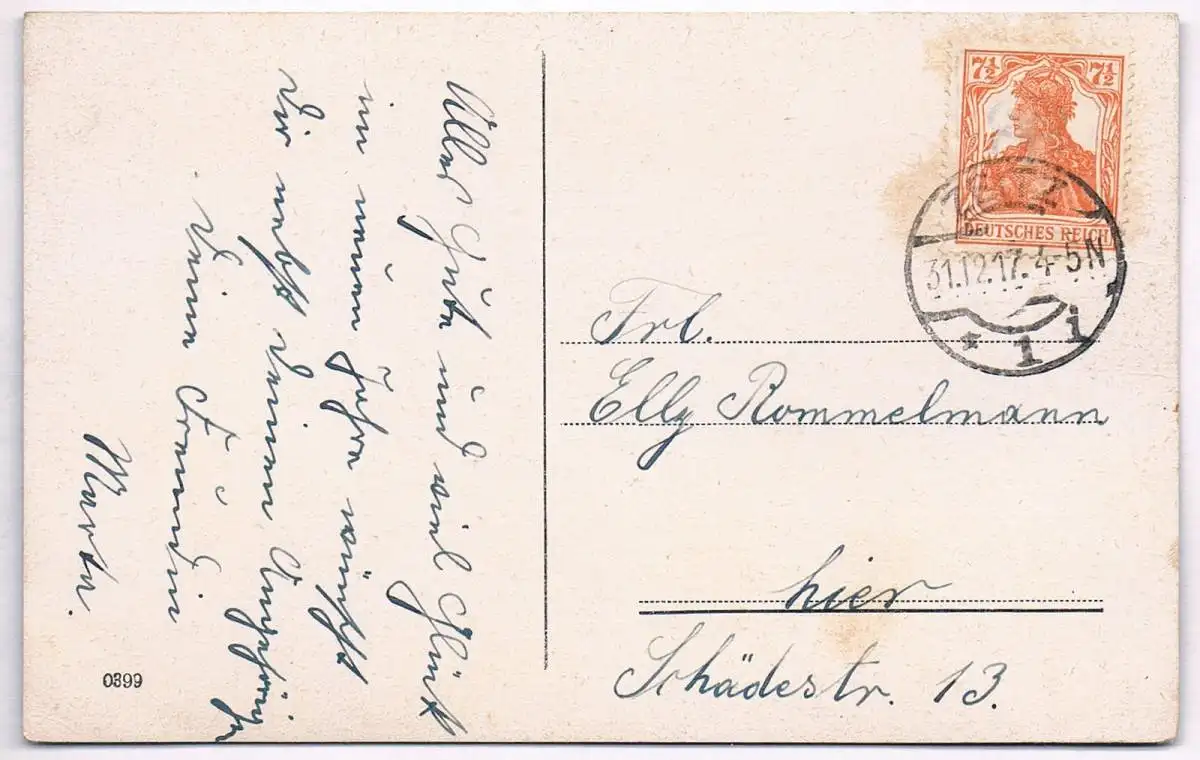 Alles Gute und viel Glück
im neuen Jahre wünscht
Dir nebst Deinen Angehörigen
Deine Freundin
Marta.
0399
7½ 7½
DEUTSCHES REICH
31.12.17. 4-5N
* 1 i
Frl.
Elly Rommelmann
hier
Schädestr. 13.